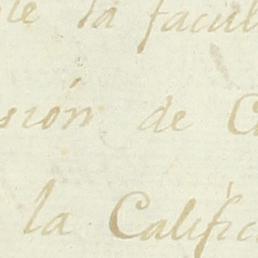 la facul
sión de C
la Califica